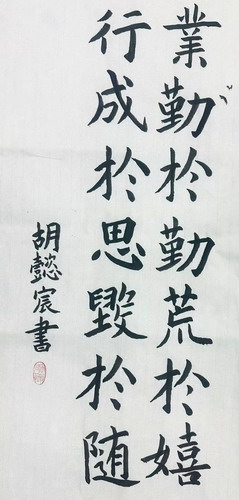 業勤於勤荒於嬉
行成於思毀於随
胡懿宸書